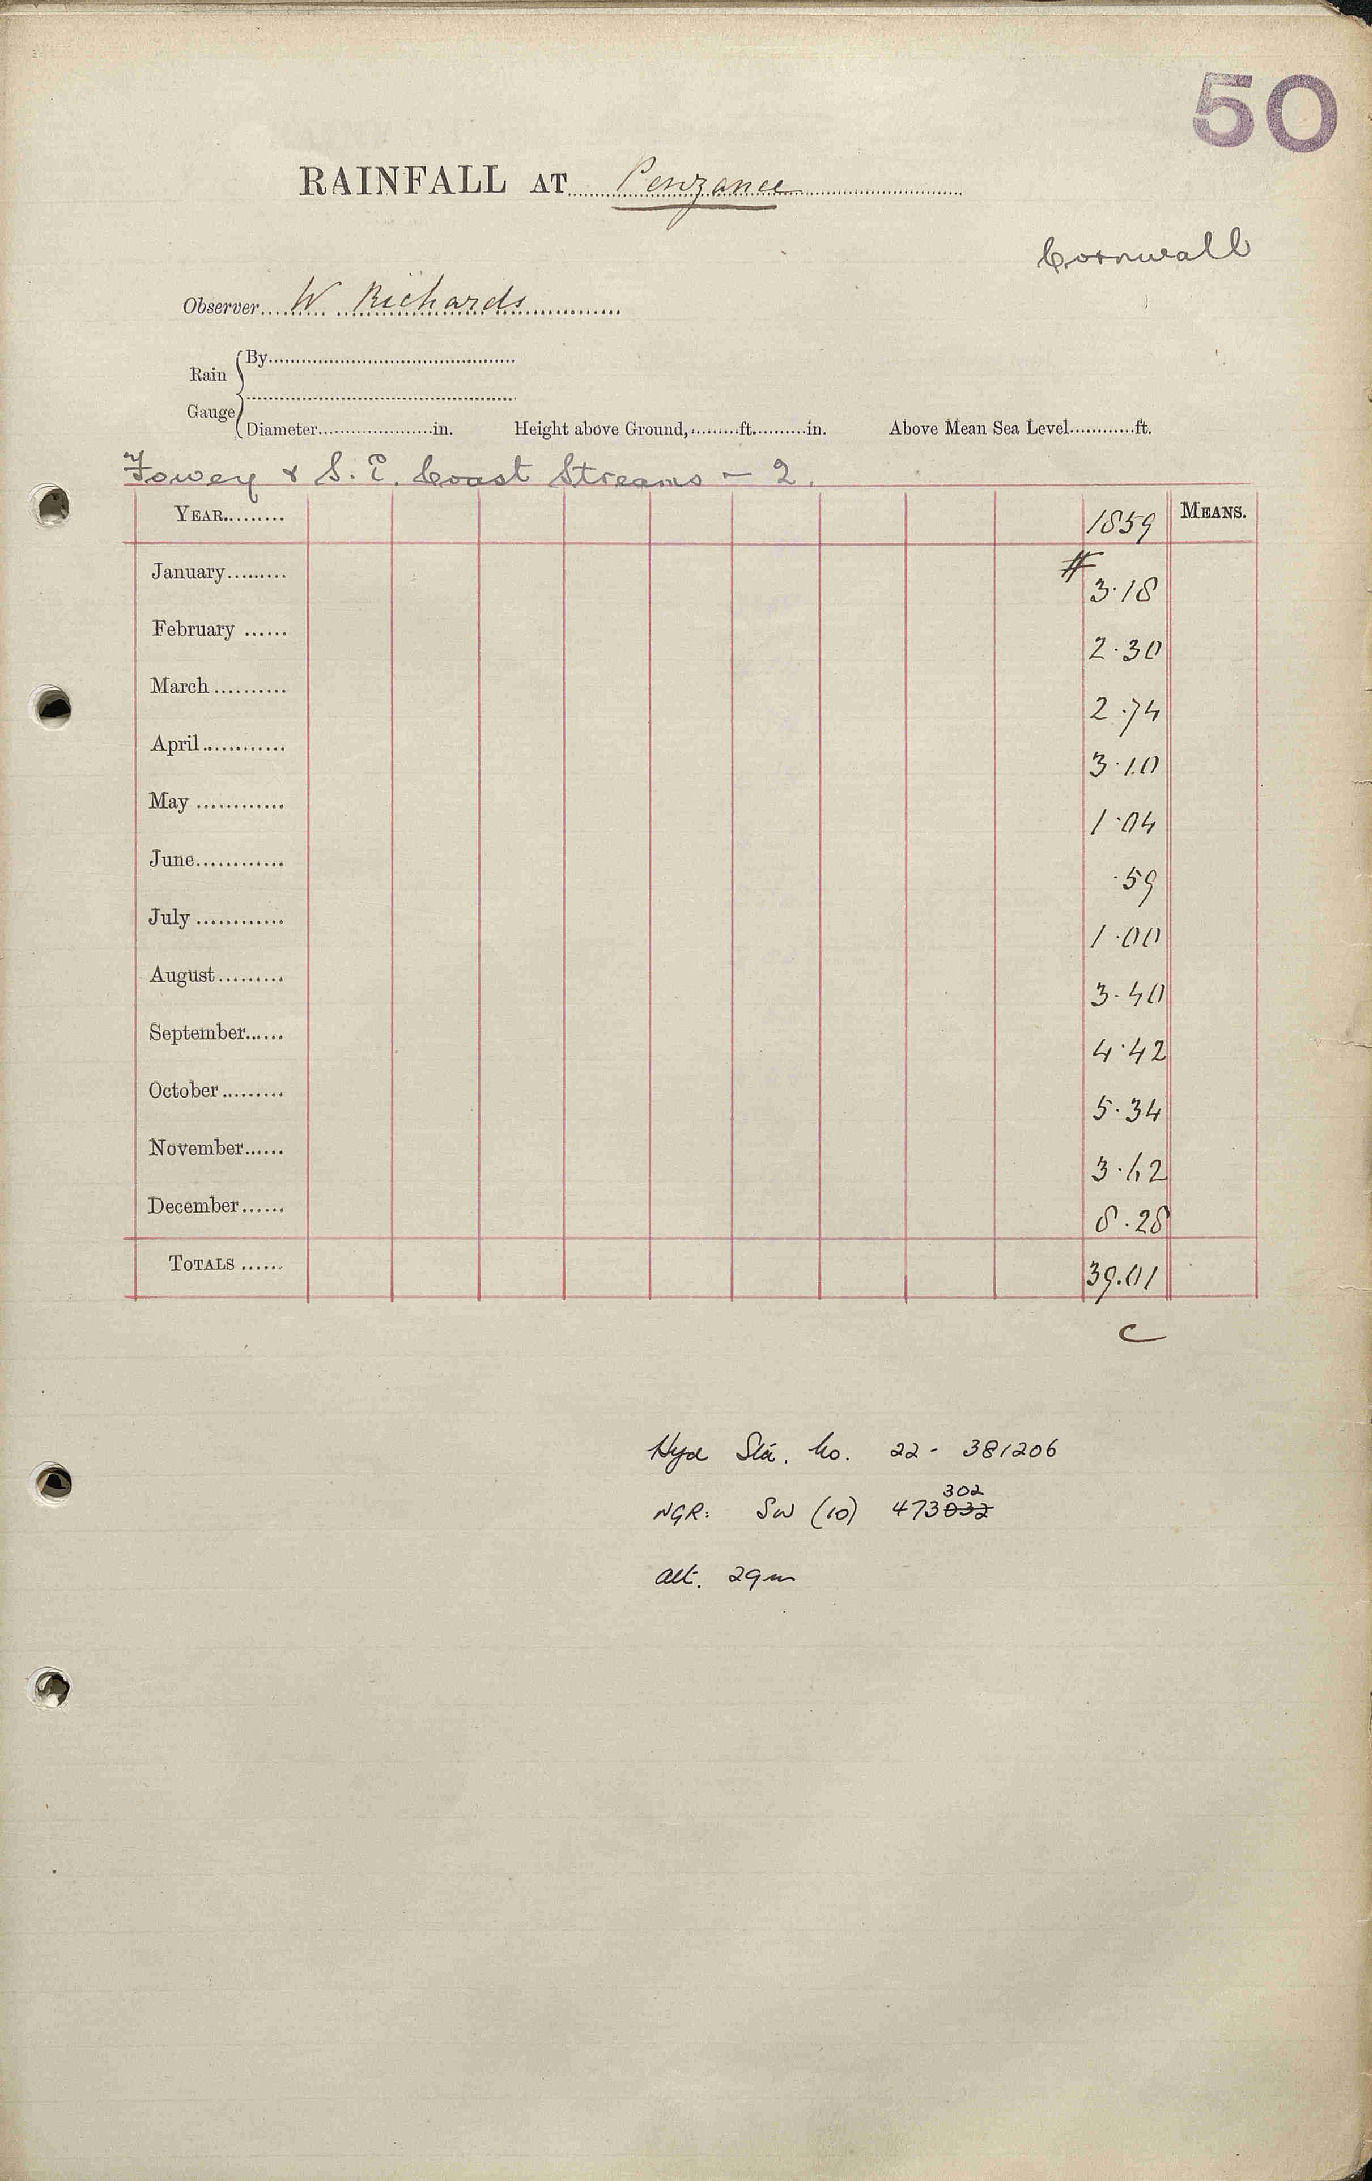 50
RAINFALL AT Penzance
Cornwall
Observer W Richards
Rain Gauge
By
Diameter in. Height above Ground, ft. in. Above Mean Sea Level ft.
Fowey & S.E. Coast Streams - 2.
YEAR 1859 MEANS.
January # 3.18
February 2.30
March 2.74
April 3.10
May 1.04
June .59
July 1.00
August 3.40
September 4.42
October 5.34
November 3.62
December 8.28
TOTALS 39.01
C
Hyd Sta. No. 22 - 381206
302
NGR: SW (10) 473032
Alt. 29m